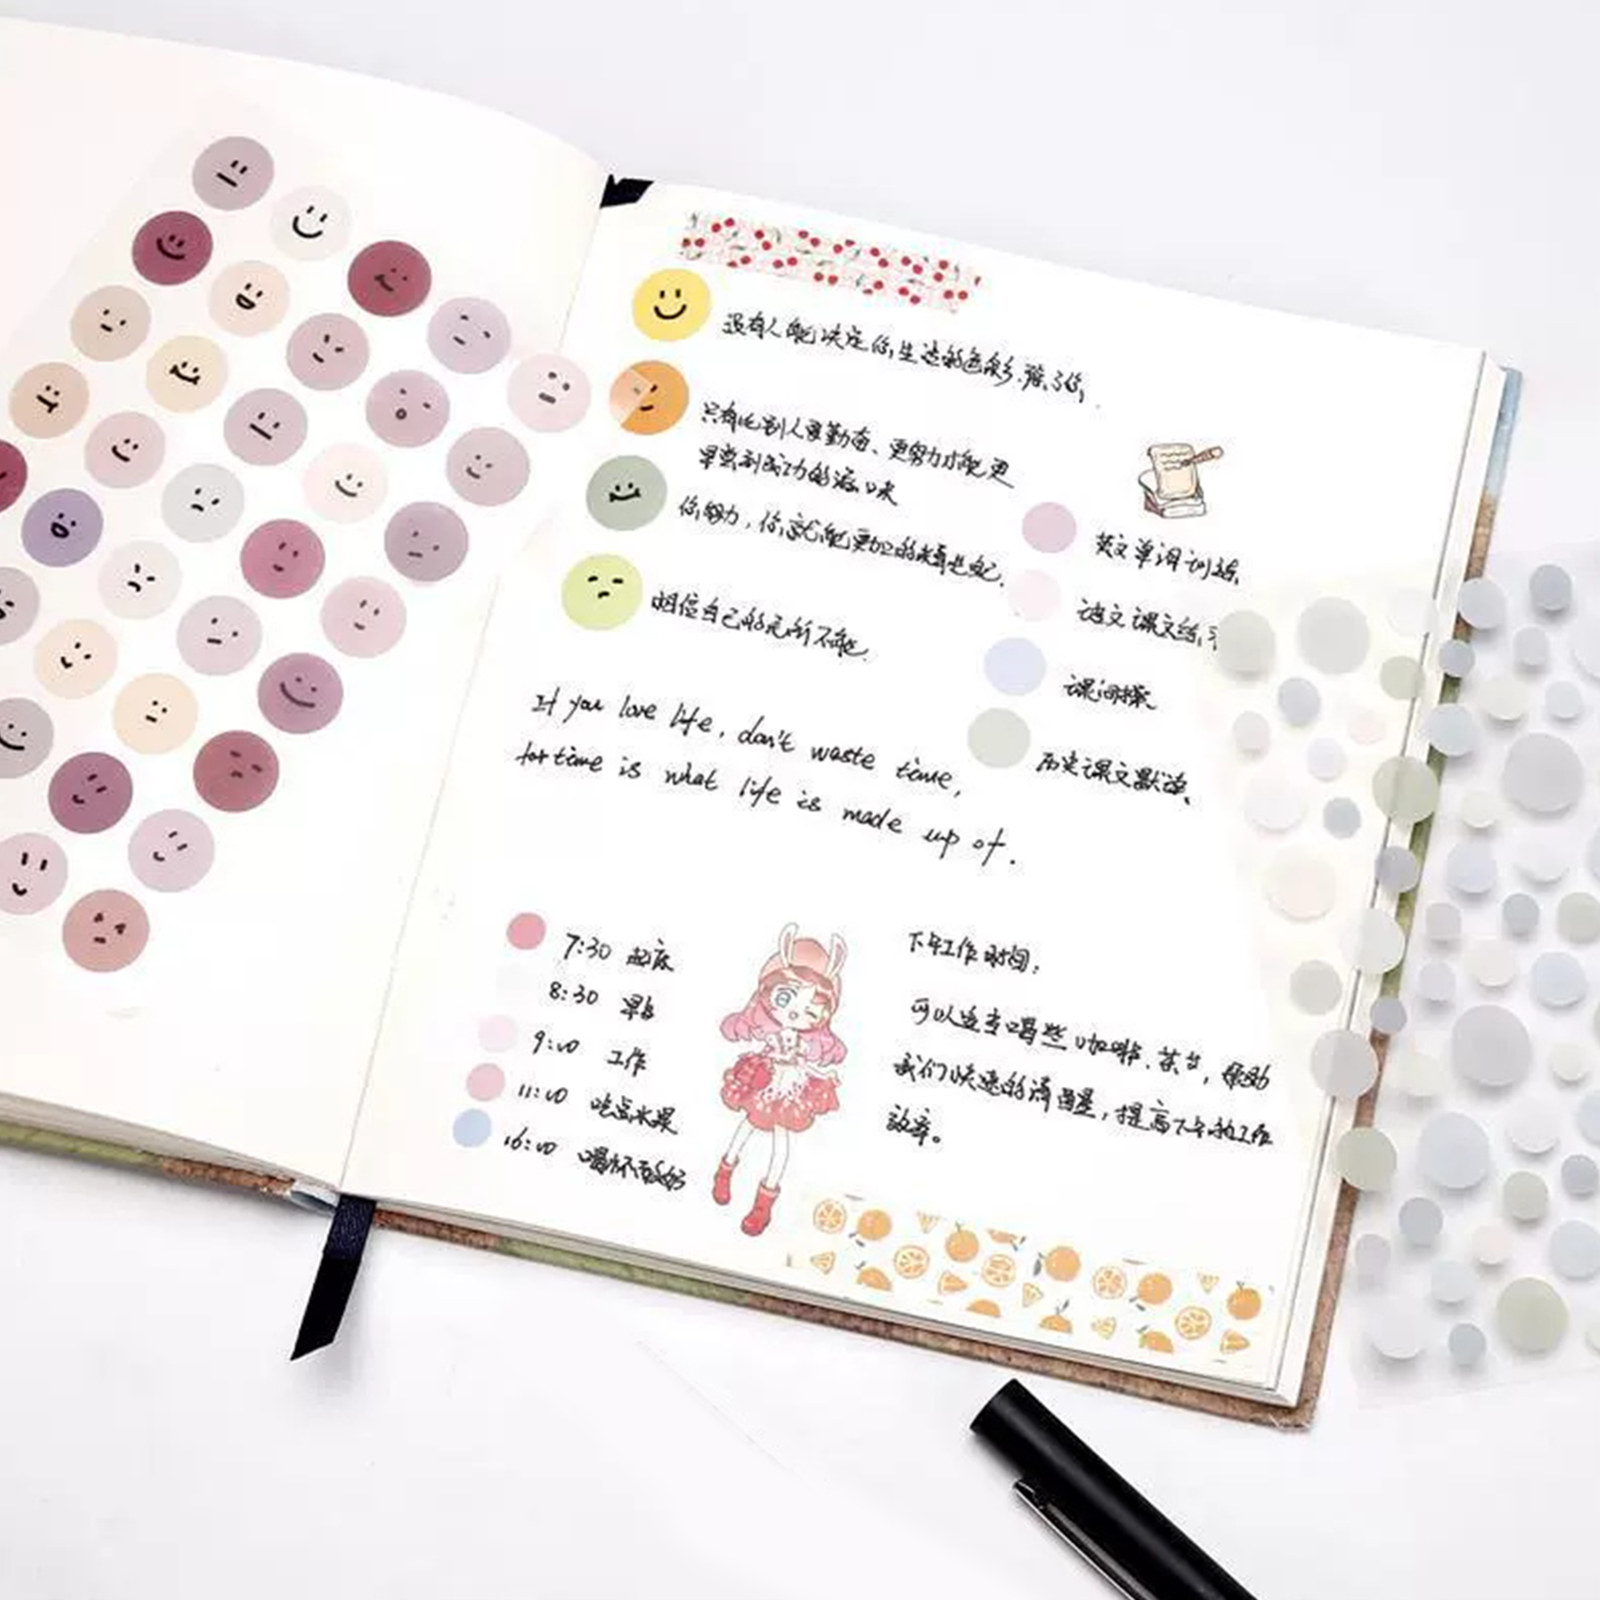 没有人能决定你生活的色彩.除了你,
只有比别人更勤奋、更努力才能更
早尝到成功的滋味
你努力,你就能更加的
相信自己的无所不能.
英文单词训练,
语文课文练习
课间操
历史课文默读、
If you love life, don't waste time,
for time is what life is made up of.
7:30 起床
8:30 早餐
9:00 工作
11:00 吃点水果
16:00 喝杯酸奶
下午工作时间:
可以适当喝些咖啡.茶告,帮助
我们快速的清醒,提高下午的工作
效率。